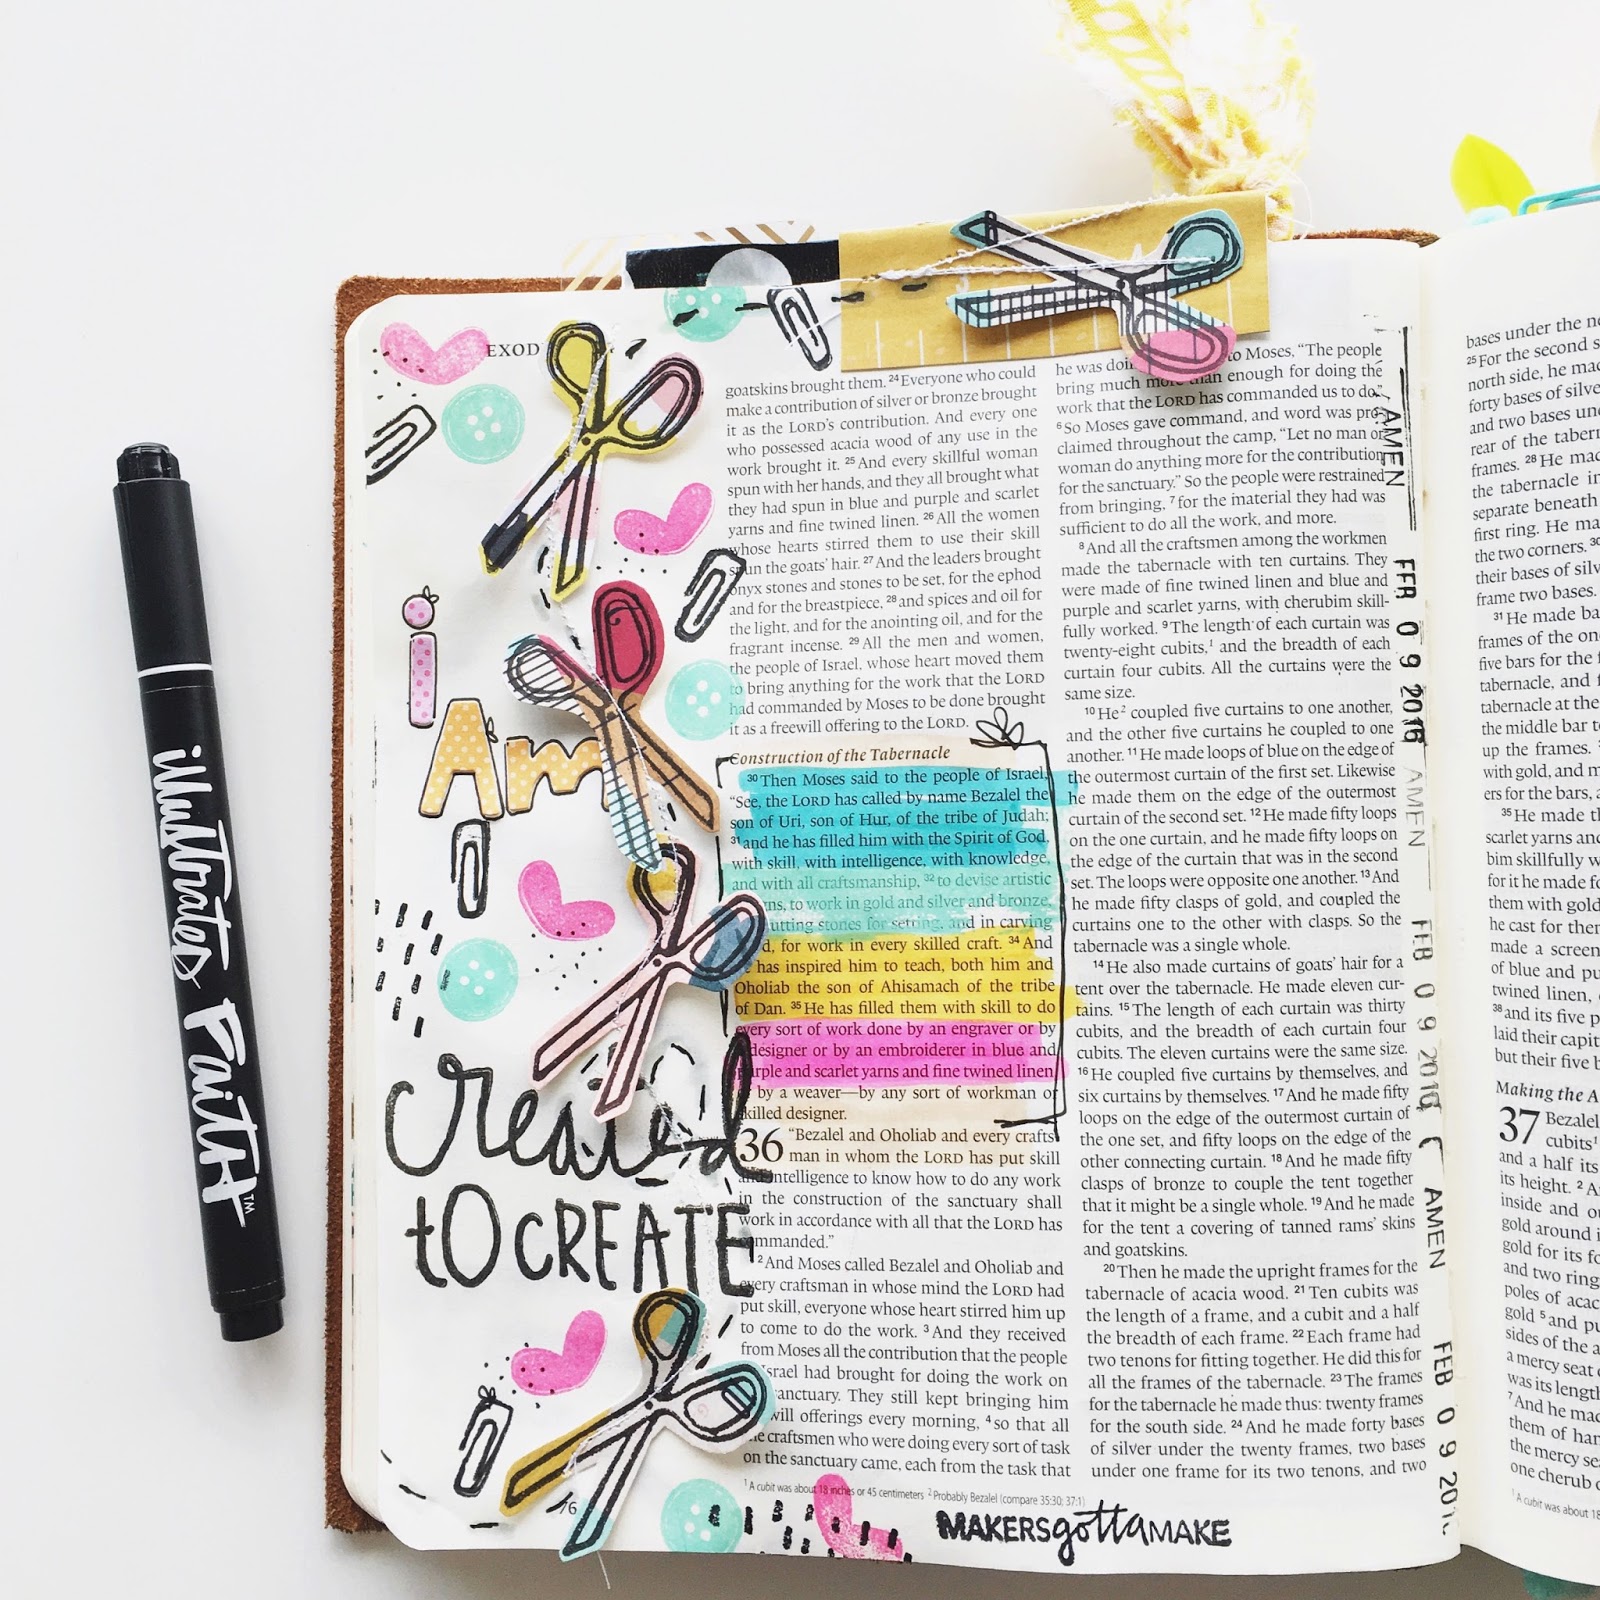 illustrated Faith™
EXOD
i
Am
created
tO CREATE
76
goatskins brought them. 24 Everyone who could
make a contribution of silver or bronze brought
it as the LORD's contribution. And every one
who possessed acacia wood of any use in the
work brought it. 25 And every skillful woman
spun with her hands, and they all brought what
they had spun in blue and purple and scarlet
yarns and fine twined linen. 26 All the women
whose hearts stirred them to use their skill
spun the goats' hair. 27 And the leaders brought
onyx stones and stones to be set, for the ephod
and for the breastpiece, 28 and spices and oil for
the light, and for the anointing oil, and for the
fragrant incense. 29 All the men and women,
the people of Israel, whose heart moved them
to bring anything for the work that the LORD
had commanded by Moses to be done brought
it as a freewill offering to the LORD.
Construction of the Tabernacle
30 Then Moses said to the people of Israel,
"See, the LORD has called by name Bezalel the
son of Uri, son of Hur, of the tribe of Judah;
31 and he has filled him with the Spirit of God,
with skill, with intelligence, with knowledge,
and with all craftsmanship, 32 to devise artistic
to work in gold and silver and bronze,
cutting stones for setting, and in carving
for work in every skilled craft. 34 And
he has inspired him to teach, both him and
Oholiab the son of Ahisamach of the tribe
of Dan. 35 He has filled them with skill to do
every sort of work done by an engraver or by
designer or by an embroiderer in blue and
purple and scarlet yarns and fine twined linen,
or by a weaver—by any sort of workman or
skilled designer.
36 "Bezalel and Oholiab and every crafts
man in whom the LORD has put skill
and intelligence to know how to do any work
in the construction of the sanctuary shall
work in accordance with all that the LORD has
commanded."
2 And Moses called Bezalel and Oholiab and
every craftsman in whose mind the LORD had
put skill, everyone whose heart stirred him up
to come to do the work. 3 And they received
from Moses all the contribution that the people
Israel had brought for doing the work on
sanctuary. They still kept bringing him
will offerings every morning, 4 so that all
the craftsmen who were doing every sort of task
on the sanctuary came, each from the task that
he was doing to Moses, "The people
bring much more than enough for doing the
work that the LORD has commanded us to do."
6 So Moses gave command, and word was pro-
claimed throughout the camp, "Let no man or
woman do anything more for the contribution
for the sanctuary." So the people were restrained
from bringing, 7 for the material they had was
sufficient to do all the work, and more.
8 And all the craftsmen among the workmen
made the tabernacle with ten curtains. They
were made of fine twined linen and blue and
purple and scarlet yarns, with cherubim skill-
fully worked. 9 The length of each curtain was
twenty-eight cubits,1 and the breadth of each
curtain four cubits. All the curtains were the
same size.
10 He2 coupled five curtains to one another,
and the other five curtains he coupled to one
another. 11 He made loops of blue on the edge of
the outermost curtain of the first set. Likewise
he made them on the edge of the outermost
curtain of the second set. 12 He made fifty loops
on the one curtain, and he made fifty loops on
the edge of the curtain that was in the second
set. The loops were opposite one another. 13 And
he made fifty clasps of gold, and coupled the
curtains one to the other with clasps. So the
tabernacle was a single whole.
14 He also made curtains of goats' hair for a
tent over the tabernacle. He made eleven cur-
tains. 15 The length of each curtain was thirty
cubits, and the breadth of each curtain four
cubits. The eleven curtains were the same size.
16 He coupled five curtains by themselves, and
six curtains by themselves. 17 And he made fifty
loops on the edge of the outermost curtain of
the one set, and fifty loops on the edge of the
other connecting curtain. 18 And he made fifty
clasps of bronze to couple the tent together
that it might be a single whole. 19 And he made
for the tent a covering of tanned rams' skins
and goatskins.
20 Then he made the upright frames for the
tabernacle of acacia wood. 21 Ten cubits was
the length of a frame, and a cubit and a half
the breadth of each frame. 22 Each frame had
two tenons for fitting together. He did this for
all the frames of the tabernacle. 23 The frames
for the tabernacle he made thus: twenty frames
for the south side. 24 And he made forty bases
of silver under the twenty frames, two bases
under one frame for its two tenons, and two
1 A cubit was about 18 inches or 45 centimeters 2 Probably Bezalel (compare 35:30; 37:1)
MAKERS gotta MAKE
AMEN FEB 09 2016 AMEN FEB 09 2016 AMEN FEB 09 201
bases under the
25 For the second
north side, he
forty bases of silver
and two bases
rear of the
frames. 28 He
the tabernacle in
separate beneath
first ring. He
the two corners. 30
their bases of
frame two bases.
31 He made
frames of the
five bars for the
tabernacle, and
the middle bar to
up the frames.
with gold, and
ers for the bars,
35 He made
scarlet yarns and
bim skillfully
for it he made
them with gold
he cast for
made a screen
of blue and
twined linen,
38 and its five
laid their
but their five
Making the
37 Bezalel
cubits1
and a half its
its height. 2
inside and
gold around
gold for its
and two
poles of
gold 5 and
sides of the
a mercy seat
was its length
7 And he
them of
the mercy
one cherub
1 A cubit was about 18